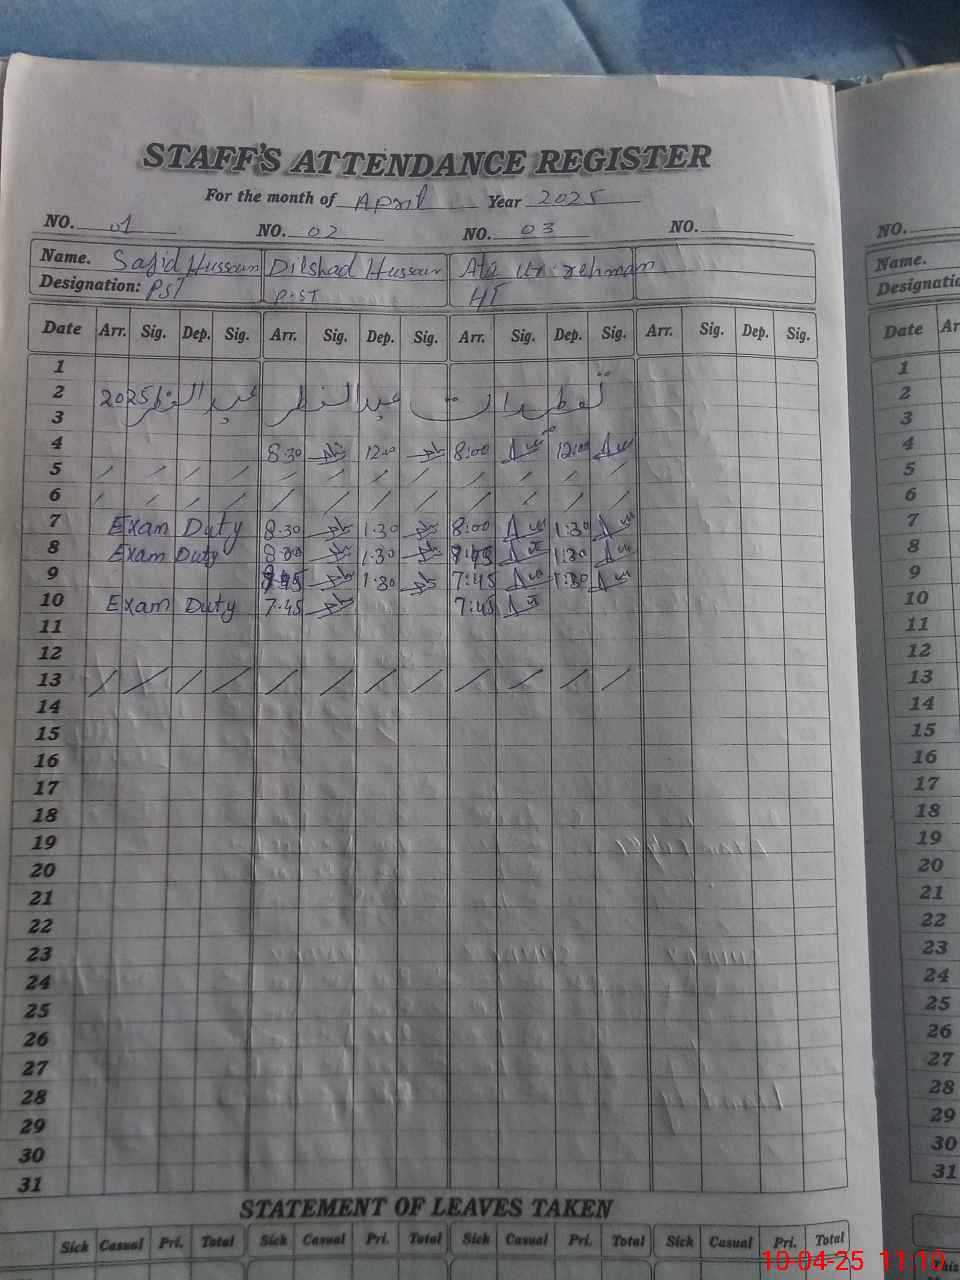 STAFF'S ATTENDANCE REGISTER
For the month of April Year 2025
NO. 01 NO. 02 NO. 03 NO.
Name. Sajid Hussain Dilshad Hussain Ata ur rehman
Designation: PST P.ST HT
Date Arr. Sig. Dep. Sig. Arr. Sig. Dep. Sig. Arr. Sig. Dep. Sig. Arr. Sig. Dep. Sig.
1
2 تعطیلات عید الفطر عید الفطر 2025
3
4 8:30 12:00 8:00 12:00
5
6
7 Exam Duty 8:30 1:30 8:00 1:30
8 Exam Duty 8:30 1:30 1:30
9 1:30 7:45 1:30
10 Exam Duty 7:45 7:45
11
12
13
14
15
16
17
18
19
20
21
22
23
24
25
26
27
28
29
30
31
STATEMENT OF LEAVES TAKEN
Sick Casual Pri. Total Sick Casual Pri. Total Sick Casual Pri. Total Sick Casual Pri. Total
NO.
Name.
Date
1
2
3
4
5
6
7
8
9
10
11
12
13
14
15
16
17
18
19
20
21
22
23
24
25
26
27
28
29
30
31
10-04-25 11:10